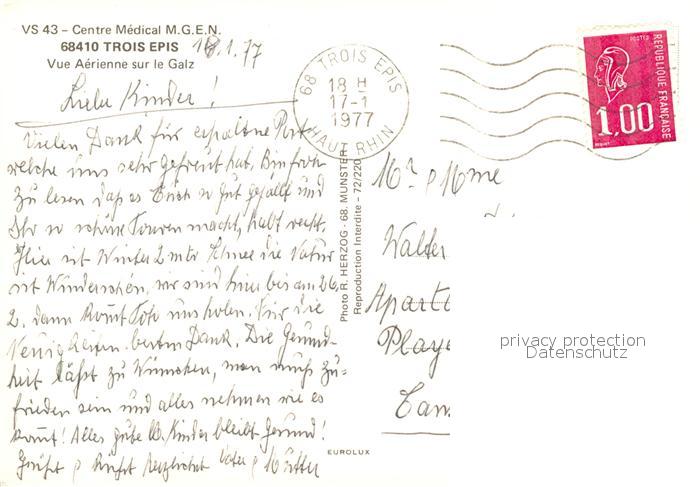 VS 43 – Centre Médical M.G.E.N.
68410 TROIS EPIS
Vue Aérienne sur le Galz
18.1.77
Liebe Kinder!
Vielen Dank für erhaltene Post
welche uns sehr gefreut hat. Bin froh
zu lesen daß es Euch so gut gefällt und
Ihr so schöne Touren macht, habt recht.
Hier ist Winter 2 mtr Schnee die Natur
ist Wunderschön, wir sind hier bis am 26.
2. dann kommt uns holen. Für die
Neuigkeiten besten Dank. Die Gesund-
heit läßt zu Wünschen, man muß zu-
frieden sein und alles nehmen wie es
kommt! Alles gute lb. Kinder bleibt Gesund!
Grüßt & Küßt herzlichst Vater & Mutter
68 TROIS EPIS
18 H
17-1
1977
HAUT RHIN
POSTES
RÉPUBLIQUE FRANÇAISE
1,00
Photo R. HERZOG - 68. MUNSTER
Reproduction Interdite - 72/220
Mr & Mme
Walter
Aparte
Playe
EUROLUX
privacy protection
Datenschutz